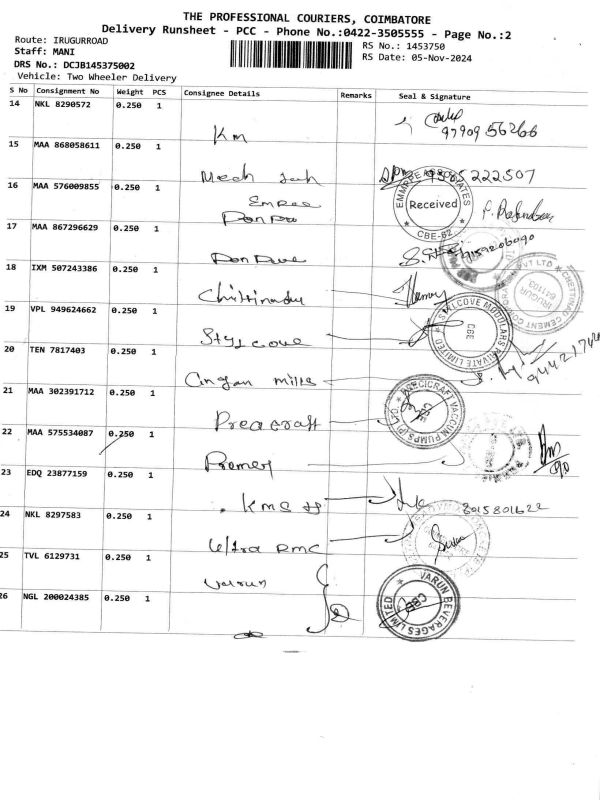 THE PROFESSIONAL COURIERS, COIMBATORE
Delivery Runsheet - PCC - Phone No.:0422-3505555 - Page No.:2
Route: IRUGURROAD
RS No.: 1453750
Staff: MANI
RS Date: 05-Nov-2024
DRS No.: DCJB145375002
Vehicle: Two Wheeler Delivery
S No Consignment No Weight PCS Consignee Details Remarks Seal & Signature
14 NKL 8290572 0.250 1
Km
97909 56266
15 MAA 868058611 0.250 1
Mech
9585222507
16 MAA 576009855 0.250 1
Empee
EMMPEE ASSOCIATES
Received
CBE-62
17 MAA 867296629 0.250 1
18 IXM 507243386 0.250 1
Chittinadu
CHETTINAD CEMENT
IRUGUR
641103
19 VPL 949624662 0.250 1
Stylcove
STYLCOVE MODULARS PRIVATE LIMITED
CBE
20 TEN 7817403 0.250 1
mills
21 MAA 302391712 0.250 1
Precicraft
PRECICRAFT VACCUN PUMPS (P) LTD.
22 MAA 575534087 0.250 1
23 EDQ 23877159 0.250 1
KMS
8015801622
24 NKL 8297583 0.250 1
Ultra RMC
25 TVL 6129731 0.250 1
Varun
26 NGL 200024385 0.250 1
VARUN BEVERAGES LIMITED
CBE